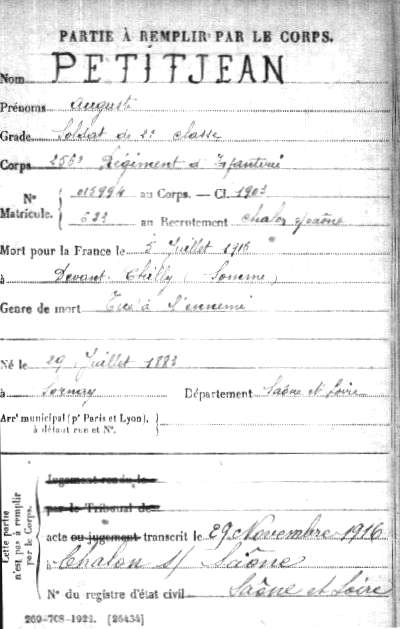 PARTIE À REMPLIR PAR LE CORPS.
Nom PETITJEAN
Prénoms Auguste
Grade Soldat de 2e classe
Corps 256e Régiment d'Infanterie
N° Matricule. 015994 au Corps. — Cl. 1903
533 au Recrutement Chalon s/ Saône
Mort pour la France le 5 Juillet 1916
à Devant Chilly (Somme)
Genre de mort Tué à l'ennemi
Né le 29 Juillet 1883
à Sornay Département Saône et Loire
Arrt municipal (pr Paris et Lyon),
à défaut rue et N°.
Cette partie
n'est pas à remplir
par le Corps.
Jugement rendu le
par le Tribunal de
acte ou jugement transcrit le 29 Novembre 1916
à Chalon s/ Saône
N° du registre d'état civil Saône et Loire
269-708-1921. [26434]